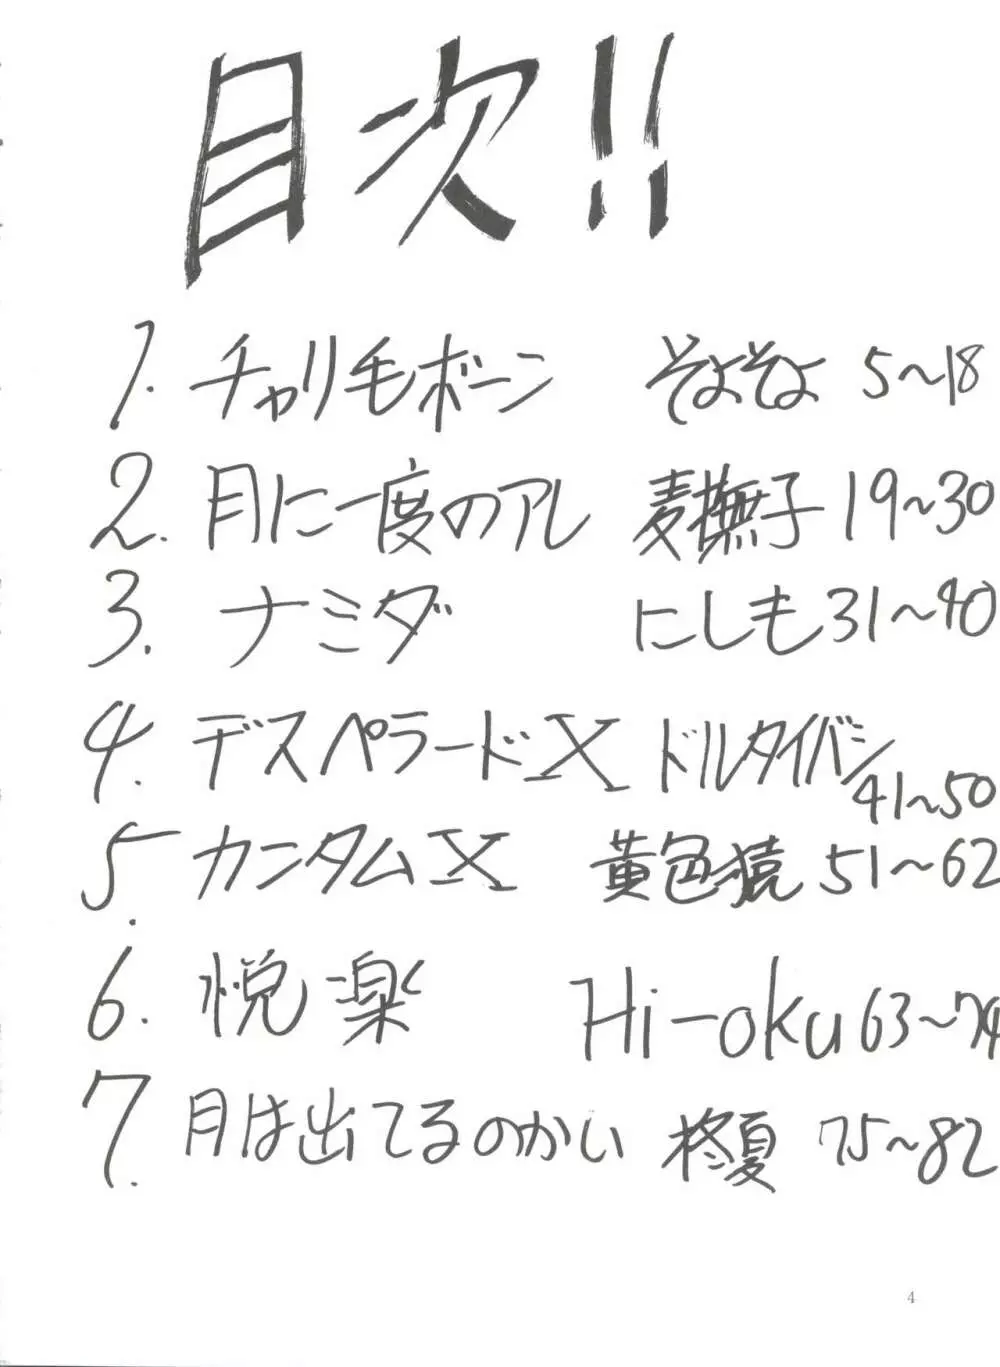 目次!!
1. チャリ毛ボーン そよそよ 5〜18
2. 月に一度のアレ 麦撫子 19〜30
3. ナミダ にしも 31〜40
4. デスペラードX ドルタイバシ 41〜50
5. カンタムX 黄色猿 51〜62
6. 悦楽 Hi-oku 63〜74
7. 月は出てるのかい 柊夏 75〜82
4